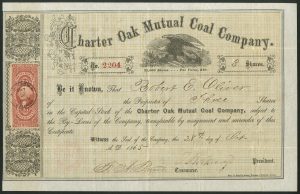 Charter Oak Mutual Coal Company.
No. 2204
3 Shares.
Be it Known, That Robert E. Oliver
is the Proprietor of Three Shares
in the Capital Stock of the Charter Oak Mutual Coal Company, subject to
the By-Laws of the Company, transferable by assignment and surrender of this
Certificate.
Witness the Seal of the Company, this 28th day of Oct
A.D. 1865
President.
Treasurer.